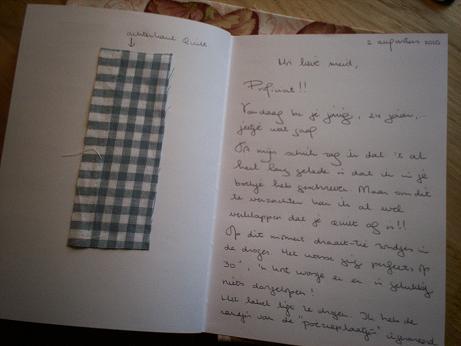 achterkant Quilt
2 augustus 2010
Mn lieve meid,
Proficiat!!
Vandaag ben je jarig, jaar,
jeetje wat
Op mijn schrik zag ik dat 't al
heel lang geleden is dat ik in je
boekje heb geschreven. Maar om dit
te verzachten kan ik al wel
verklappen dat je quilt af is!!
Op dit moment draait-ie rondjes in
de droger. Het wassen ging perfect op
30°, 'n kort wasje en er is gelukkig
niets doorgelopen!
Het label ligt te drogen. Ik heb de
van de "poezieplaatje"